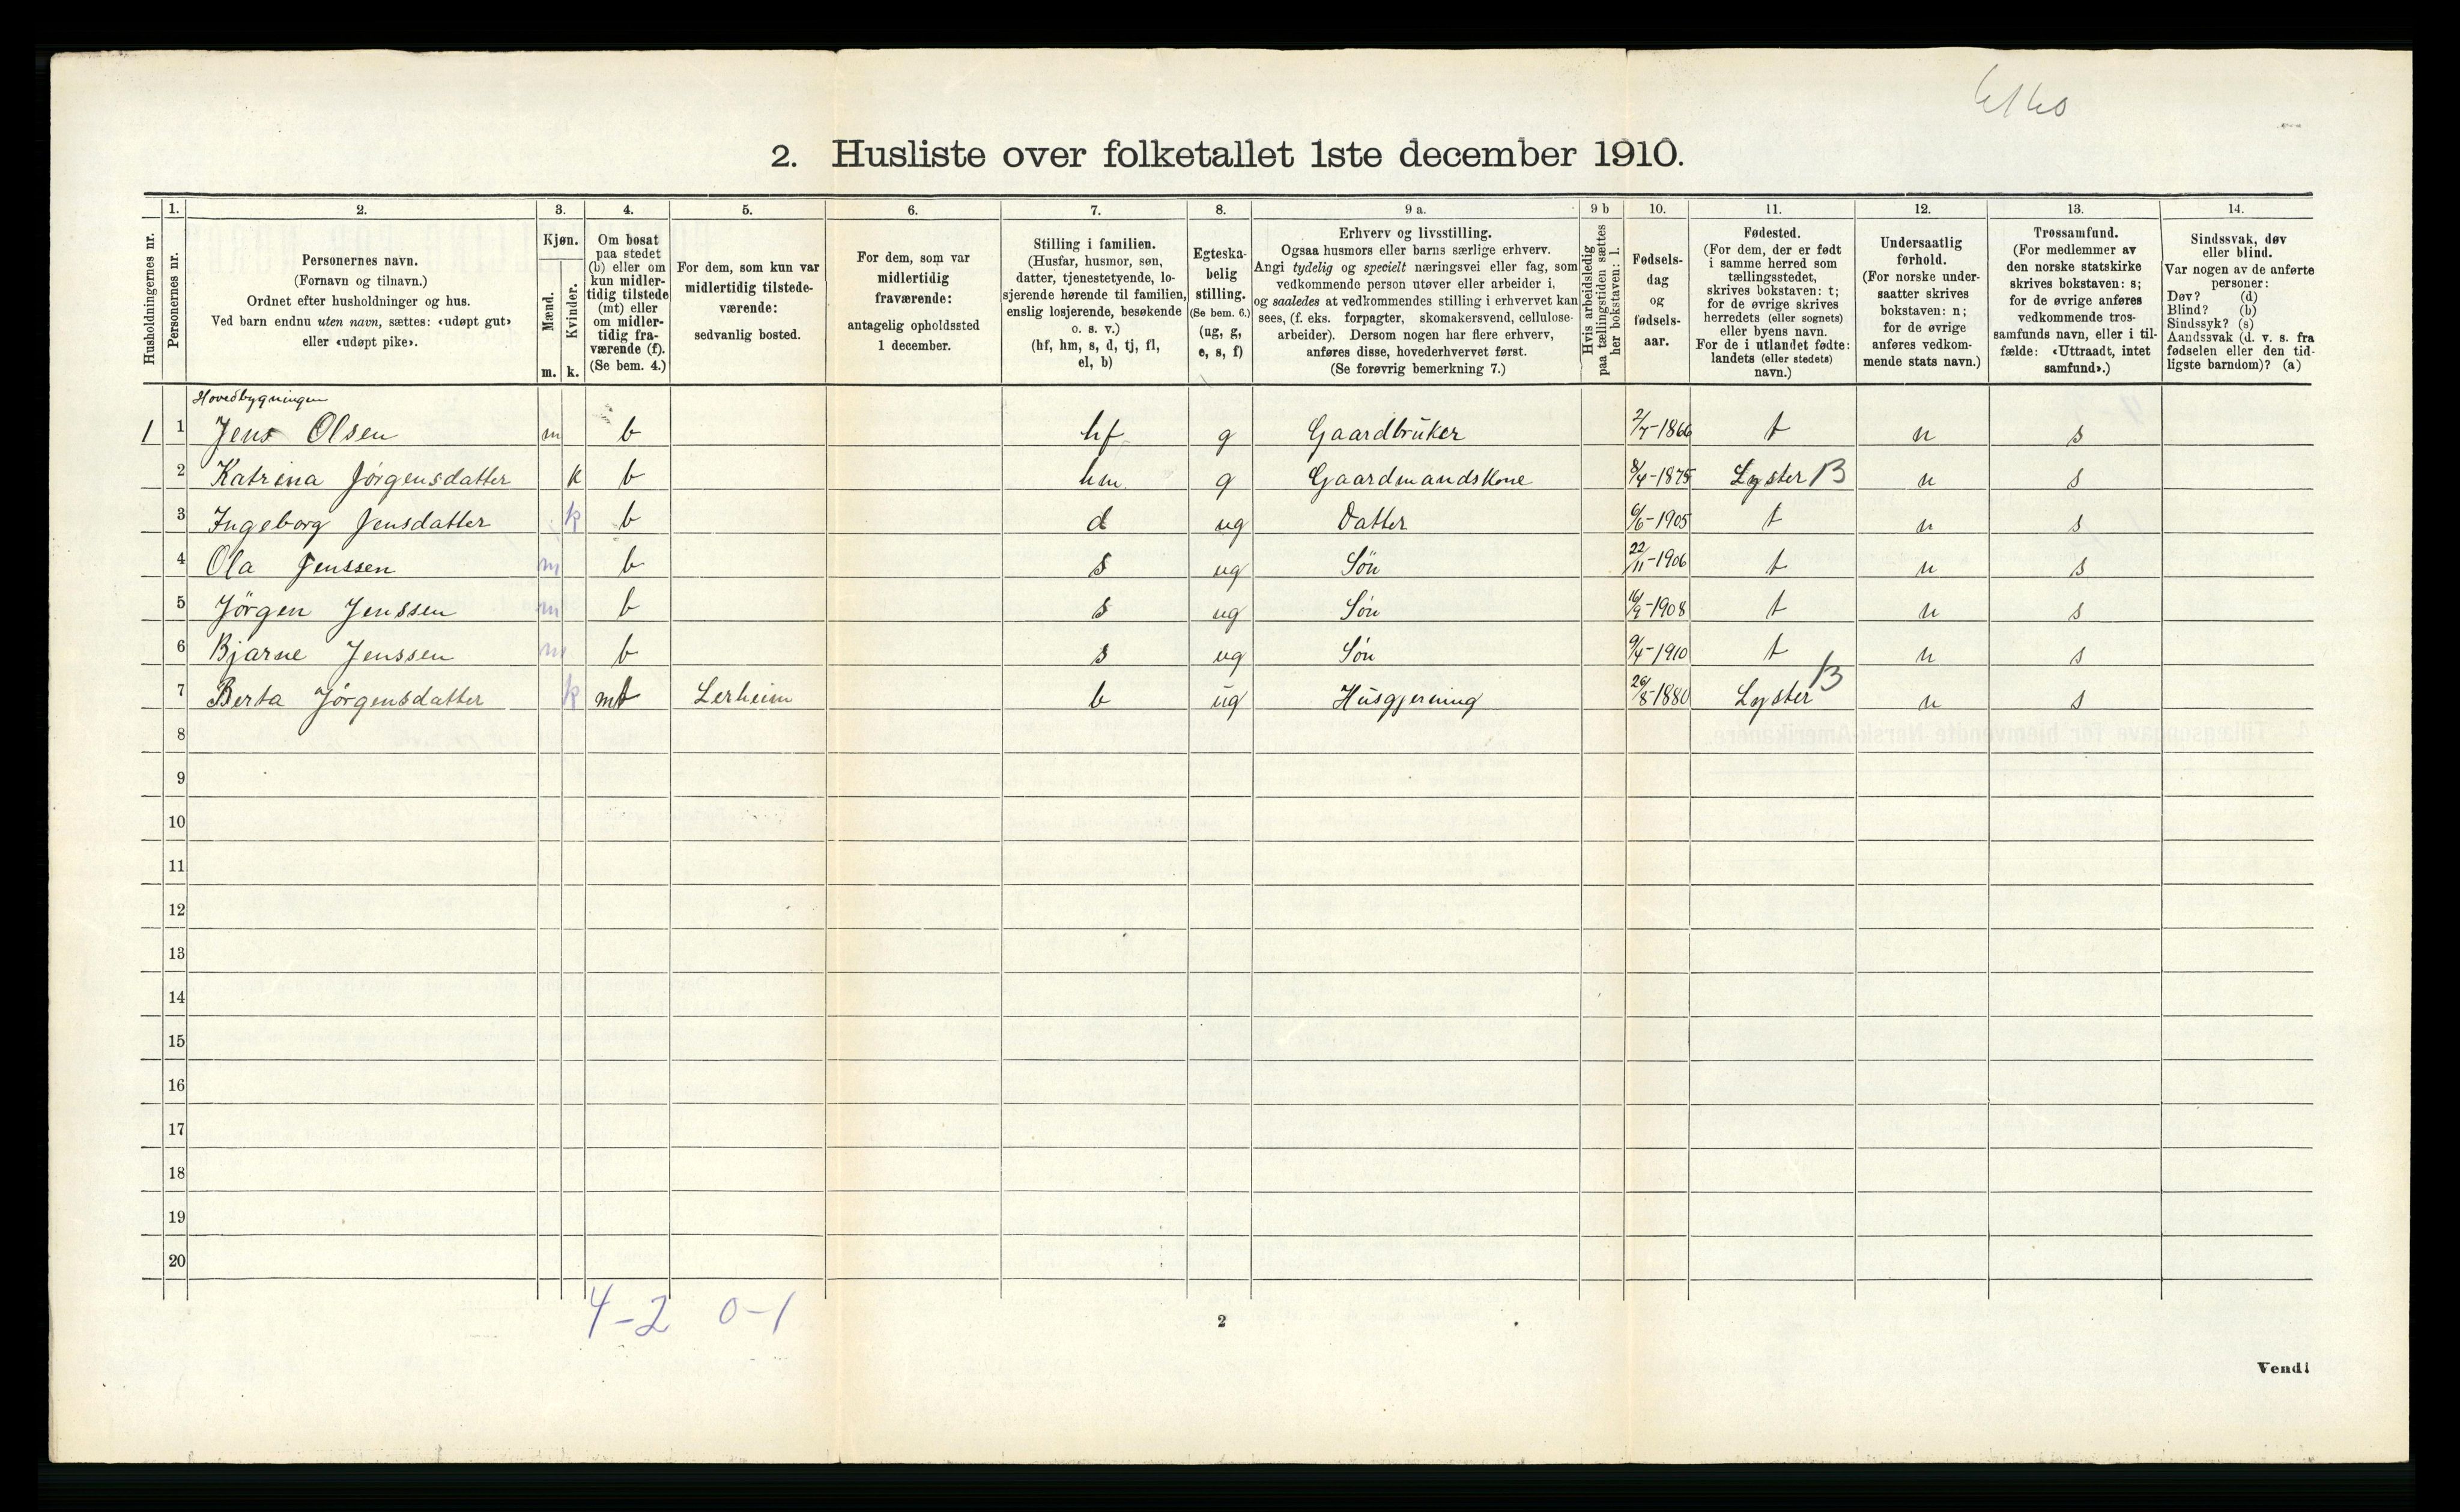 2. Husliste over folketallet 1ste december 1910.
Husholdningernes nr.
1. Personernes nr.
2. Personernes navn.
(Fornavn og tilnavn.)
Ordnet efter husholdninger og hus.
Ved barn endnu uten navn, sættes: «udøpt gut»
eller «udøpt pike».
3. Kjøn.
Mænd. m.
Kvinder. k.
4. Om bosat
paa stedet
(b) eller om
kun midler-
tidig tilstede
(mt) eller
om midler-
tidig fra-
værende (f).
(Se bem. 4.)
5. For dem, som kun var
midlertidig tilstede-
værende:
sedvanlig bosted.
6. For dem, som var
midlertidig
fraværende:
antagelig opholdssted
1 december.
7. Stilling i familien.
(Husfar, husmor, søn,
datter, tjenestetyende, lo-
sjerende hørende til familien,
enslig losjerende, besøkende
o. s. v.)
(hf, hm, s, d, tj, fl,
el, b)
8. Egteska-
belig
stilling.
(Se bem. 6.)
(ug, g,
e, s, f)
9 a. Erhverv og livsstilling.
Ogsaa husmors eller barns særlige erhverv.
Angi tydelig og specielt næringsvei eller fag, som
vedkommende person utøver eller arbeider i,
og saaledes at vedkommendes stilling i erhvervet kan
sees, (f. eks. forpagter, skomakersvend, cellulose-
arbeider). Dersom nogen har flere erhverv,
anføres disse, hovederhvervet først.
(Se forøvrig bemerkning 7.)
9 b Hvis arbeidsledig
paa tællingstiden sættes
her bokstaven: l.
10. Fødsels-
dag
og
fødsels-
aar.
11. Fødested.
(For dem, der er født
i samme herred som
tællingsstedet,
skrives bokstaven: t;
for de øvrige skrives
herredets (eller sognets)
eller byens navn.
For de i utlandet fødte:
landets (eller stedets)
navn.)
12. Undersaatlig
forhold.
(For norske under-
saatter skrives
bokstaven: n;
for de øvrige
anføres vedkom-
mende stats navn.)
13. Trossamfund.
(For medlemmer av
den norske statskirke
skrives bokstaven: s;
for de øvrige anføres
vedkommende tros-
samfunds navn, eller i til-
fælde: «Uttraadt, intet
samfund».)
14. Sindssvak, døv
eller blind.
Var nogen av de anførte
personer:
Døv? (d)
Blind? (b)
Sindssyk? (s)
Aandssvak (d. v. s. fra
fødselen eller den tid-
ligste barndom)? (a)
Hovedbygningen
1 1 Jens Olsen m b hf g Gaardbruker 2/7-1866 t n s
2 Katrina Jörgensdatter k b hm g Gaardmandskone 8/4-1875 Lyster B n s
3 Ingeborg Jensdatter k b d ug Datter 6/6-1905 t n s
4 Ola Jenssen m b s ug Sön 22/11-1906 t n s
5 Jörgen Jenssen m b s ug Sön 16/9-1908 t n s
6 Bjarne Jenssen m b s ug Sön 9/4-1910 t n s
7 Berta Jörgensdatter k mt Lerheim b ug Husgjerning 26/8-1880 Lyster B n s
8
9
10
11
12
13
14
15
16
17
18
19
20
4-2 0-1
2
Vend!